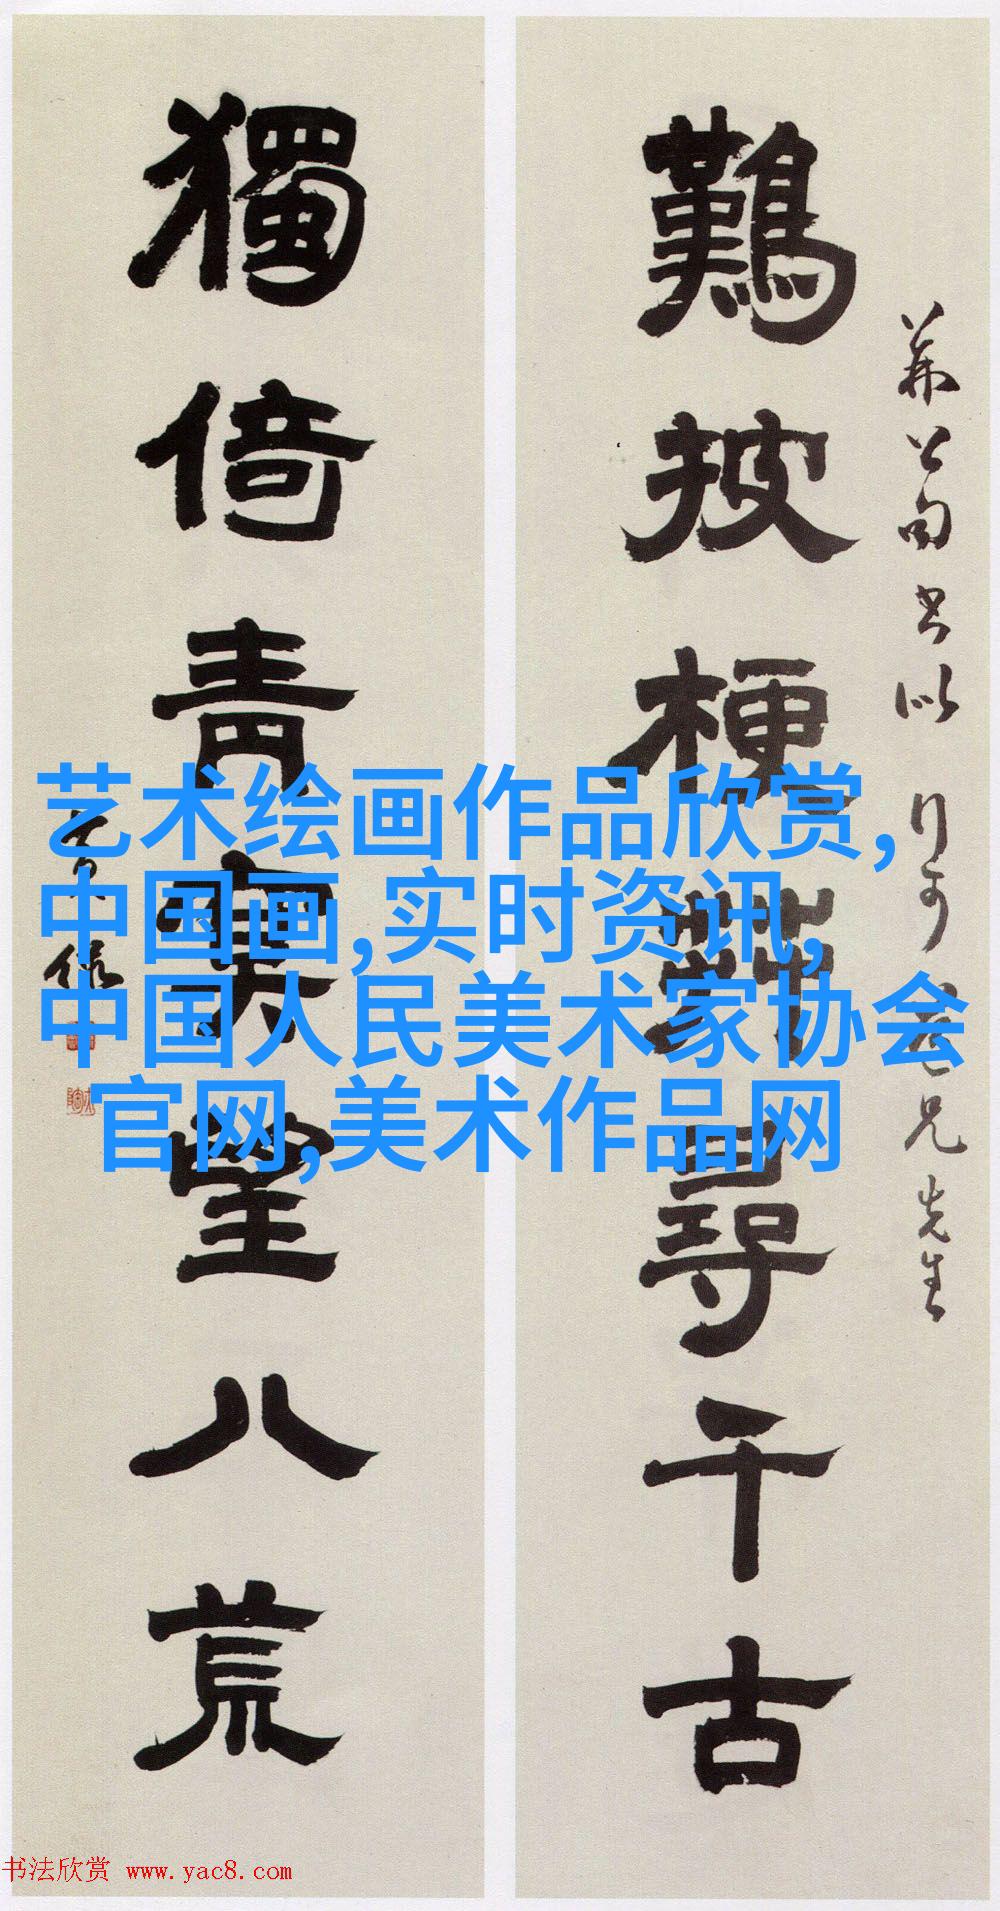 難披梗尋千古
公句書以行可兄先生
獨倚青望八荒
艺术绘画作品欣赏,
中国画,实时资讯,
中国人民美术家协会
官网,美术作品网
书法欣赏 www.yac8.com